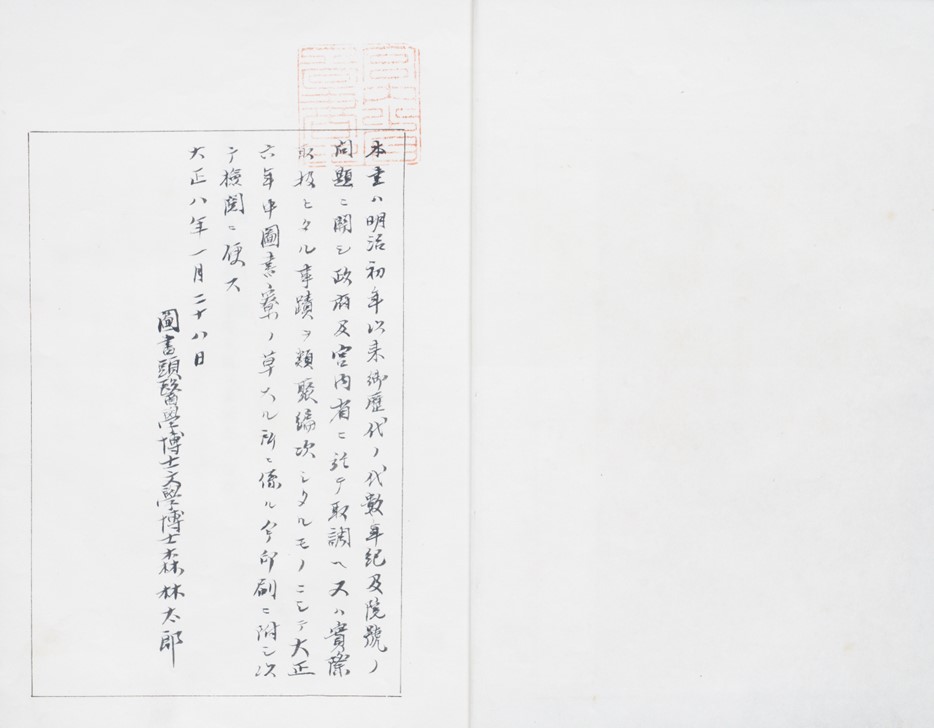 本書ハ明治初年以来御歴代ノ代數年紀及院號ノ
問題ニ関シ政府及宮内省ニ於テ取調ヘ又ハ實際
取扱ヒタル事蹟ヲ類聚編次シタルモノニシテ大正
六年中圖書寮ノ草スル所ニ係ル今印刷ニ附シ以
テ檢閲ニ便ス
大正八年一月二十八日
圖書頭醫學博士文學博士森林太郎